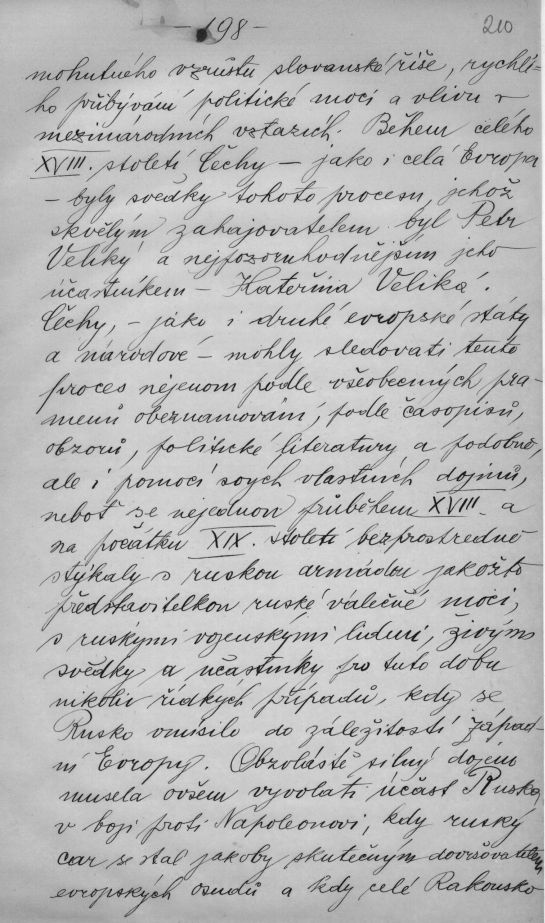 - 198 -
210
mohutného vzrůstu slovanské říše, rychlé-
ho přibývání politické moci a vlivu v
mezinárodních vztazích. Během celého
XVIII. století Čechy – jako i celá Evropa
– byly svědky tohoto procesu, jehož
skvělým zahajovatelem byl Petr
Veliký a nejpozoruhodnějším jeho
účastníkem – Kateřina Veliká.
Čechy, – jako i druhé evropské státy
a národové – mohly sledovati tento
proces nejenom podle všeobecných pra-
menů obeznamování, podle časopisů,
obzorů, politické literatury a podobně,
ale i pomocí svých vlastních dojmů,
neboť se nejednou průběhem XVIII. a
na počátku XIX. století bezprostředně
stýkaly s ruskou armádou jakožto
představitelkou ruské válečné moci,
s ruskými vojenskými lidmi, živými
svědky a účastníky pro tuto dobu
nikoliv řídkých případů, kdy se
Rusko vmísilo do záležitostí západ-
ní Evropy. Obzvláště silný dojem
musela ovšem vyvolati účast Ruska
v boji proti Napoleonovi, kdy ruský
car se stal jakoby skutečným dovršovatelem
evropských osudů a kdy celé Rakousko